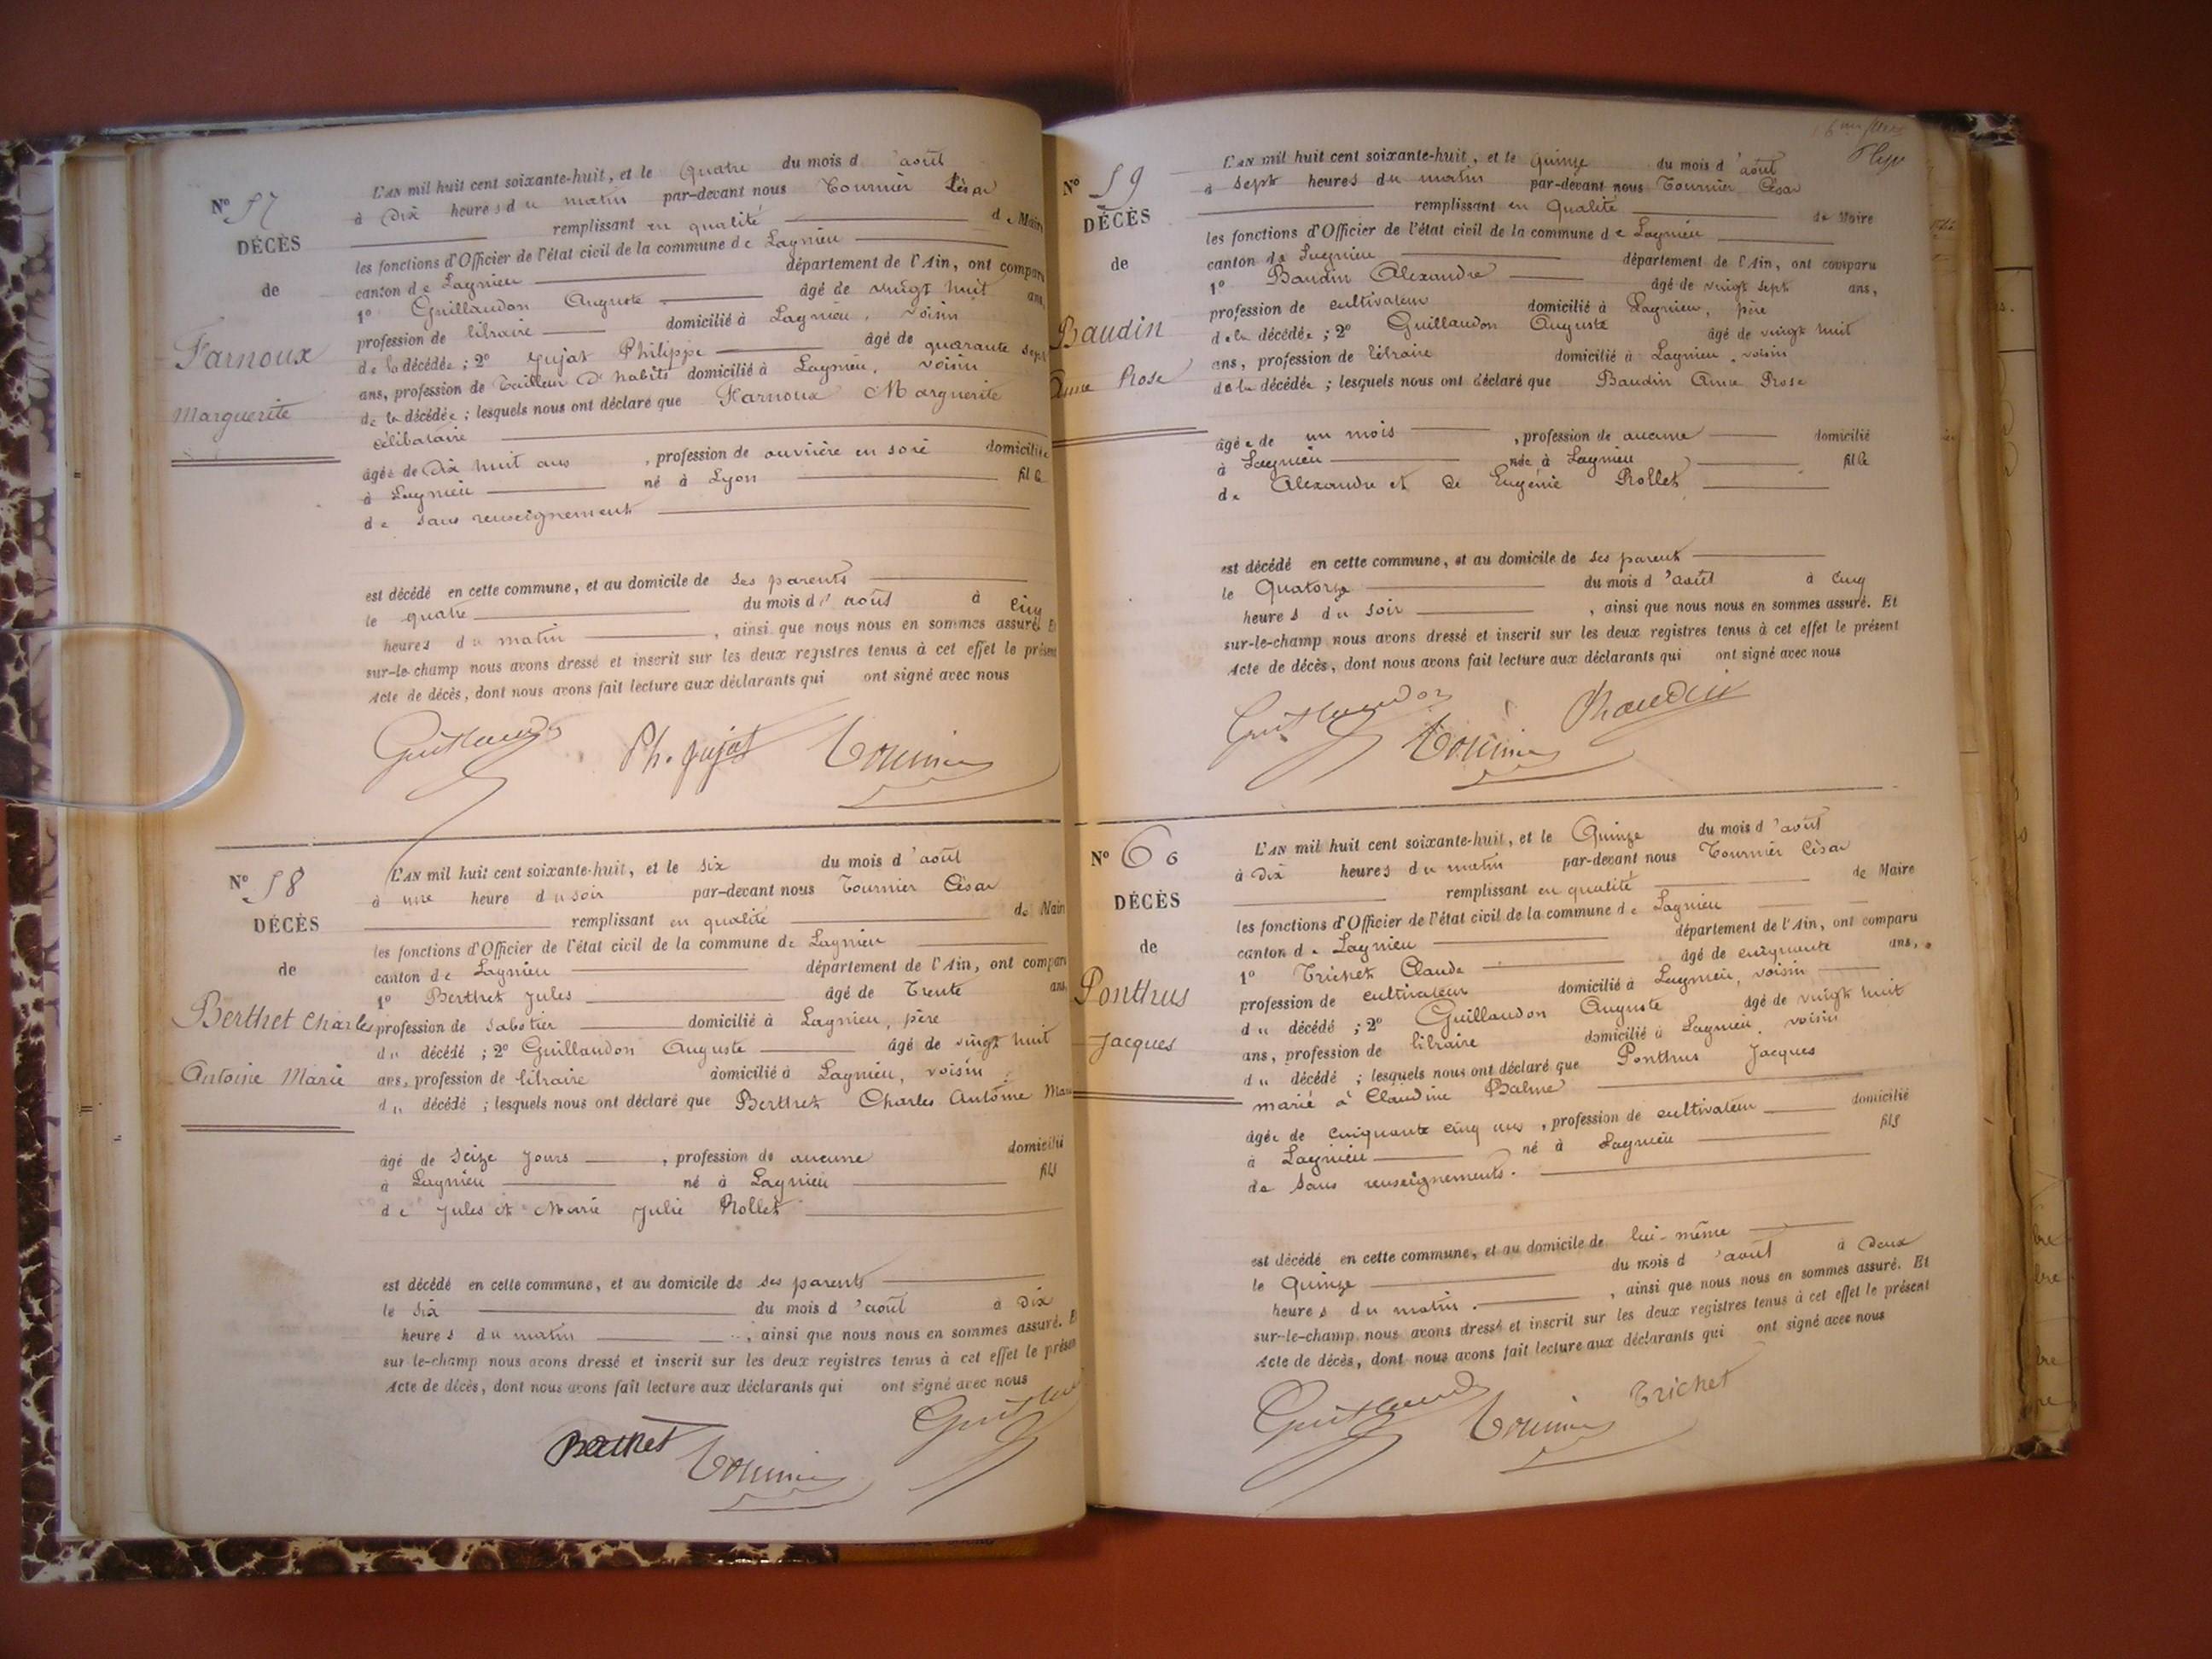 Nº 57
DÉCÈS
de
Farnoux
Marguerite
L'AN mil huit cent soixante-huit, et le quatre du mois d'août
à Dix heures du matin par-devant nous Tournier César
remplissant en qualité de Maire
les fonctions d'Officier de l'état civil de la commune de Lagnieu
canton de Lagnieu département de l'Ain, ont comparu
1º Guillaudon Auguste âgé de vingt huit ans,
profession de libraire domicilié à Lagnieu, voisin
de la décédée ; 2º Jujat Philippe âgé de quarante sept
ans, profession de Tailleur d'habits domicilié à Lagnieu, voisin
de la décédée ; lesquels nous ont déclaré que Farnoux Marguerite
célibataire
âgée de Dix huit ans , profession de ouvrière en soie domiciliée
à Lagnieu né à Lyon fille
de sans renseignements
est décédé en cette commune, et au domicile de ses parents
le quatre du mois d'août à cinq
heures du matin , ainsi que nous nous en sommes assuré. Et
sur-le-champ nous avons dressé et inscrit sur les deux registres tenus à cet effet le présent
Acte de décès, dont nous avons fait lecture aux déclarants qui ont signé avec nous
Guillaudon Ph. Jujat Tournier
Nº 58
DÉCÈS
de
Berthet Charles
Antoine Marie
L'AN mil huit cent soixante-huit, et le six du mois d'août
à une heure du soir par-devant nous Tournier César
remplissant en qualité de Maire
les fonctions d'Officier de l'état civil de la commune de Lagnieu
canton de Lagnieu département de l'Ain, ont comparu
1º Berthet Jules âgé de Trente ans,
profession de sabotier domicilié à Lagnieu, père
du décédé ; 2º Guillaudon Auguste âgé de vingt huit
ans, profession de libraire domicilié à Lagnieu, voisin
du décédé ; lesquels nous ont déclaré que Berthet Charles Antoine Marie
âgé de seize jours , profession de aucune domicilié
à Lagnieu né à Lagnieu fils
de Jules et Marie Julie Rollet
est décédé en cette commune, et au domicile de ses parents
le six du mois d'août à Dix
heures du matin , ainsi que nous nous en sommes assuré. Et
sur le-champ nous avons dressé et inscrit sur les deux registres tenus à cet effet le présent
Acte de décès, dont nous avons fait lecture aux déclarants qui ont signé avec nous
Berthet Tournier Guillaudon
Nº 59
DÉCÈS
de
Baudin
Anne Rose
L'AN mil huit cent soixante-huit, et le quinze du mois d'août
à sept heures du matin par-devant nous Tournier César
remplissant en qualité de Maire
les fonctions d'Officier de l'état civil de la commune de Lagnieu
canton de Lagnieu département de l'Ain, ont comparu
1º Baudin Alexandre âgé de vingt sept ans,
profession de cultivateur domicilié à Lagnieu, père
de la décédée ; 2º Guillaudon Auguste âgé de vingt huit
ans, profession de libraire domicilié à Lagnieu, voisin
de la décédée ; lesquels nous ont déclaré que Baudin Anne Rose
âgée de un mois , profession de aucune domicilié
à Lagnieu née à Lagnieu fille
de Alexandre et de Eugénie Rollet
est décédé en cette commune, et au domicile de ses parents
le Quatorze du mois d'août à cinq
heures du soir , ainsi que nous nous en sommes assuré. Et
sur-le-champ nous avons dressé et inscrit sur les deux registres tenus à cet effet le présent
Acte de décès, dont nous avons fait lecture aux déclarants qui ont signé avec nous
Guillaudon Tournier Baudin
Nº 60
DÉCÈS
de
Ponthus
Jacques
L'AN mil huit cent soixante-huit, et le Quinze du mois d'août
à Dix heures du matin par-devant nous Tournier César
remplissant en qualité de Maire
les fonctions d'Officier de l'état civil de la commune de Lagnieu
canton de Lagnieu département de l'Ain, ont comparu
1º Trichet Claude âgé de cinquante ans,
profession de cultivateur domicilié à Lagnieu, voisin
du décédé ; 2º Guillaudon Auguste âgé de vingt huit
ans, profession de libraire domicilié à Lagnieu, voisin
du décédé ; lesquels nous ont déclaré que Ponthus Jacques
marié à Claudine Balme
âgée de cinquante cinq ans , profession de cultivateur domicilié
à Lagnieu né à Lagnieu fils
de sans renseignements.
est décédé en cette commune, et au domicile de lui-même
le Quinze du mois d'août à Deux
heures du matin. , ainsi que nous nous en sommes assuré. Et
sur-le-champ nous avons dressé et inscrit sur les deux registres tenus à cet effet le présent
Acte de décès, dont nous avons fait lecture aux déclarants qui ont signé avec nous
Guillaudon Tournier Trichet